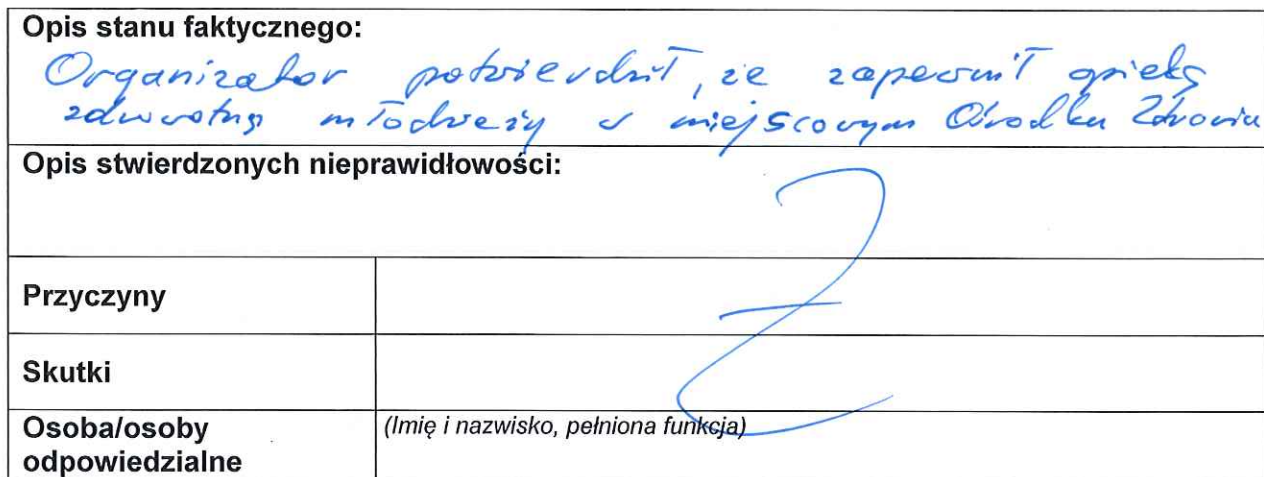 Opis stanu faktycznego:
Organizator potwierdził, że zapewnił opiekę
zdrowotną młodzieży w miejscowym Ośrodku Zdrowia
Opis stwierdzonych nieprawidłowości:
Przyczyny
Skutki
Osoba/osoby
odpowiedzialne
(Imię i nazwisko, pełniona funkcja)